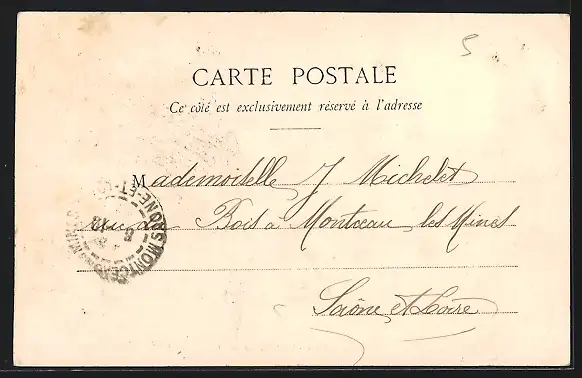 5
CARTE POSTALE
Ce côté est exclusivement réservé à l'adresse
Mademoiselle J Michelet
rue du Bois a Montceau les Mines
Saône et Loire
MONTCEAU-LES-MINES SAÔNE-ET-L